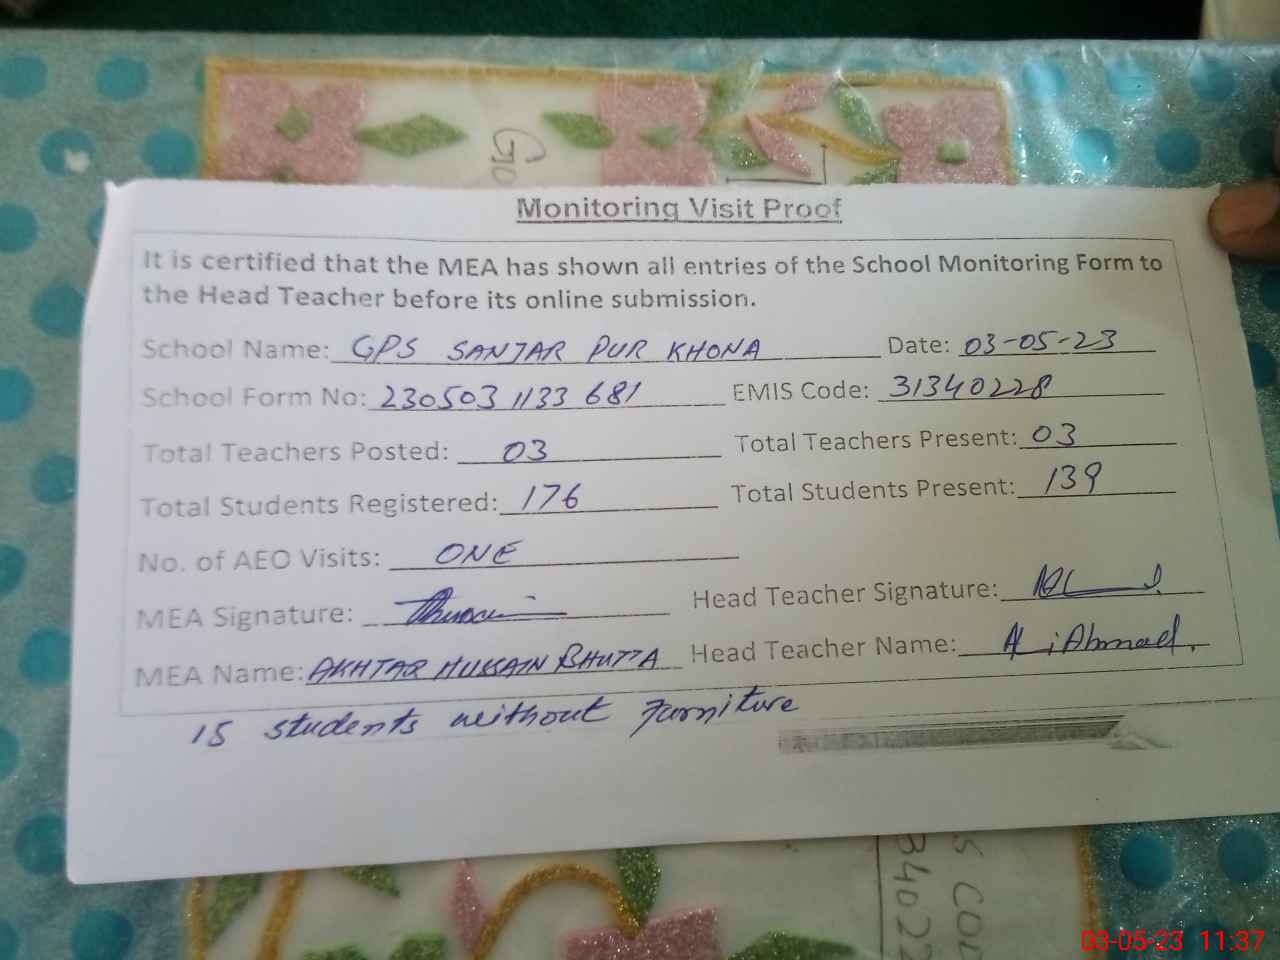 Monitoring Visit Proof
It is certified that the MEA has shown all entries of the School Monitoring Form to
the Head Teacher before its online submission.
School Name: GPS SANJAR PUR KHONA Date: 03-05-23
School Form No: 230503 1133 681 EMIS Code: 31340228
Total Teachers Posted: 03 Total Teachers Present: 03
Total Students Registered: 176 Total Students Present: 139
No. of AEO Visits: ONE
MEA Signature: Head Teacher Signature:
MEA Name: AKHTAR HUSSAIN BHUTTA Head Teacher Name: Ali Ahmad.
15 students without furniture
03-05-23 11:37